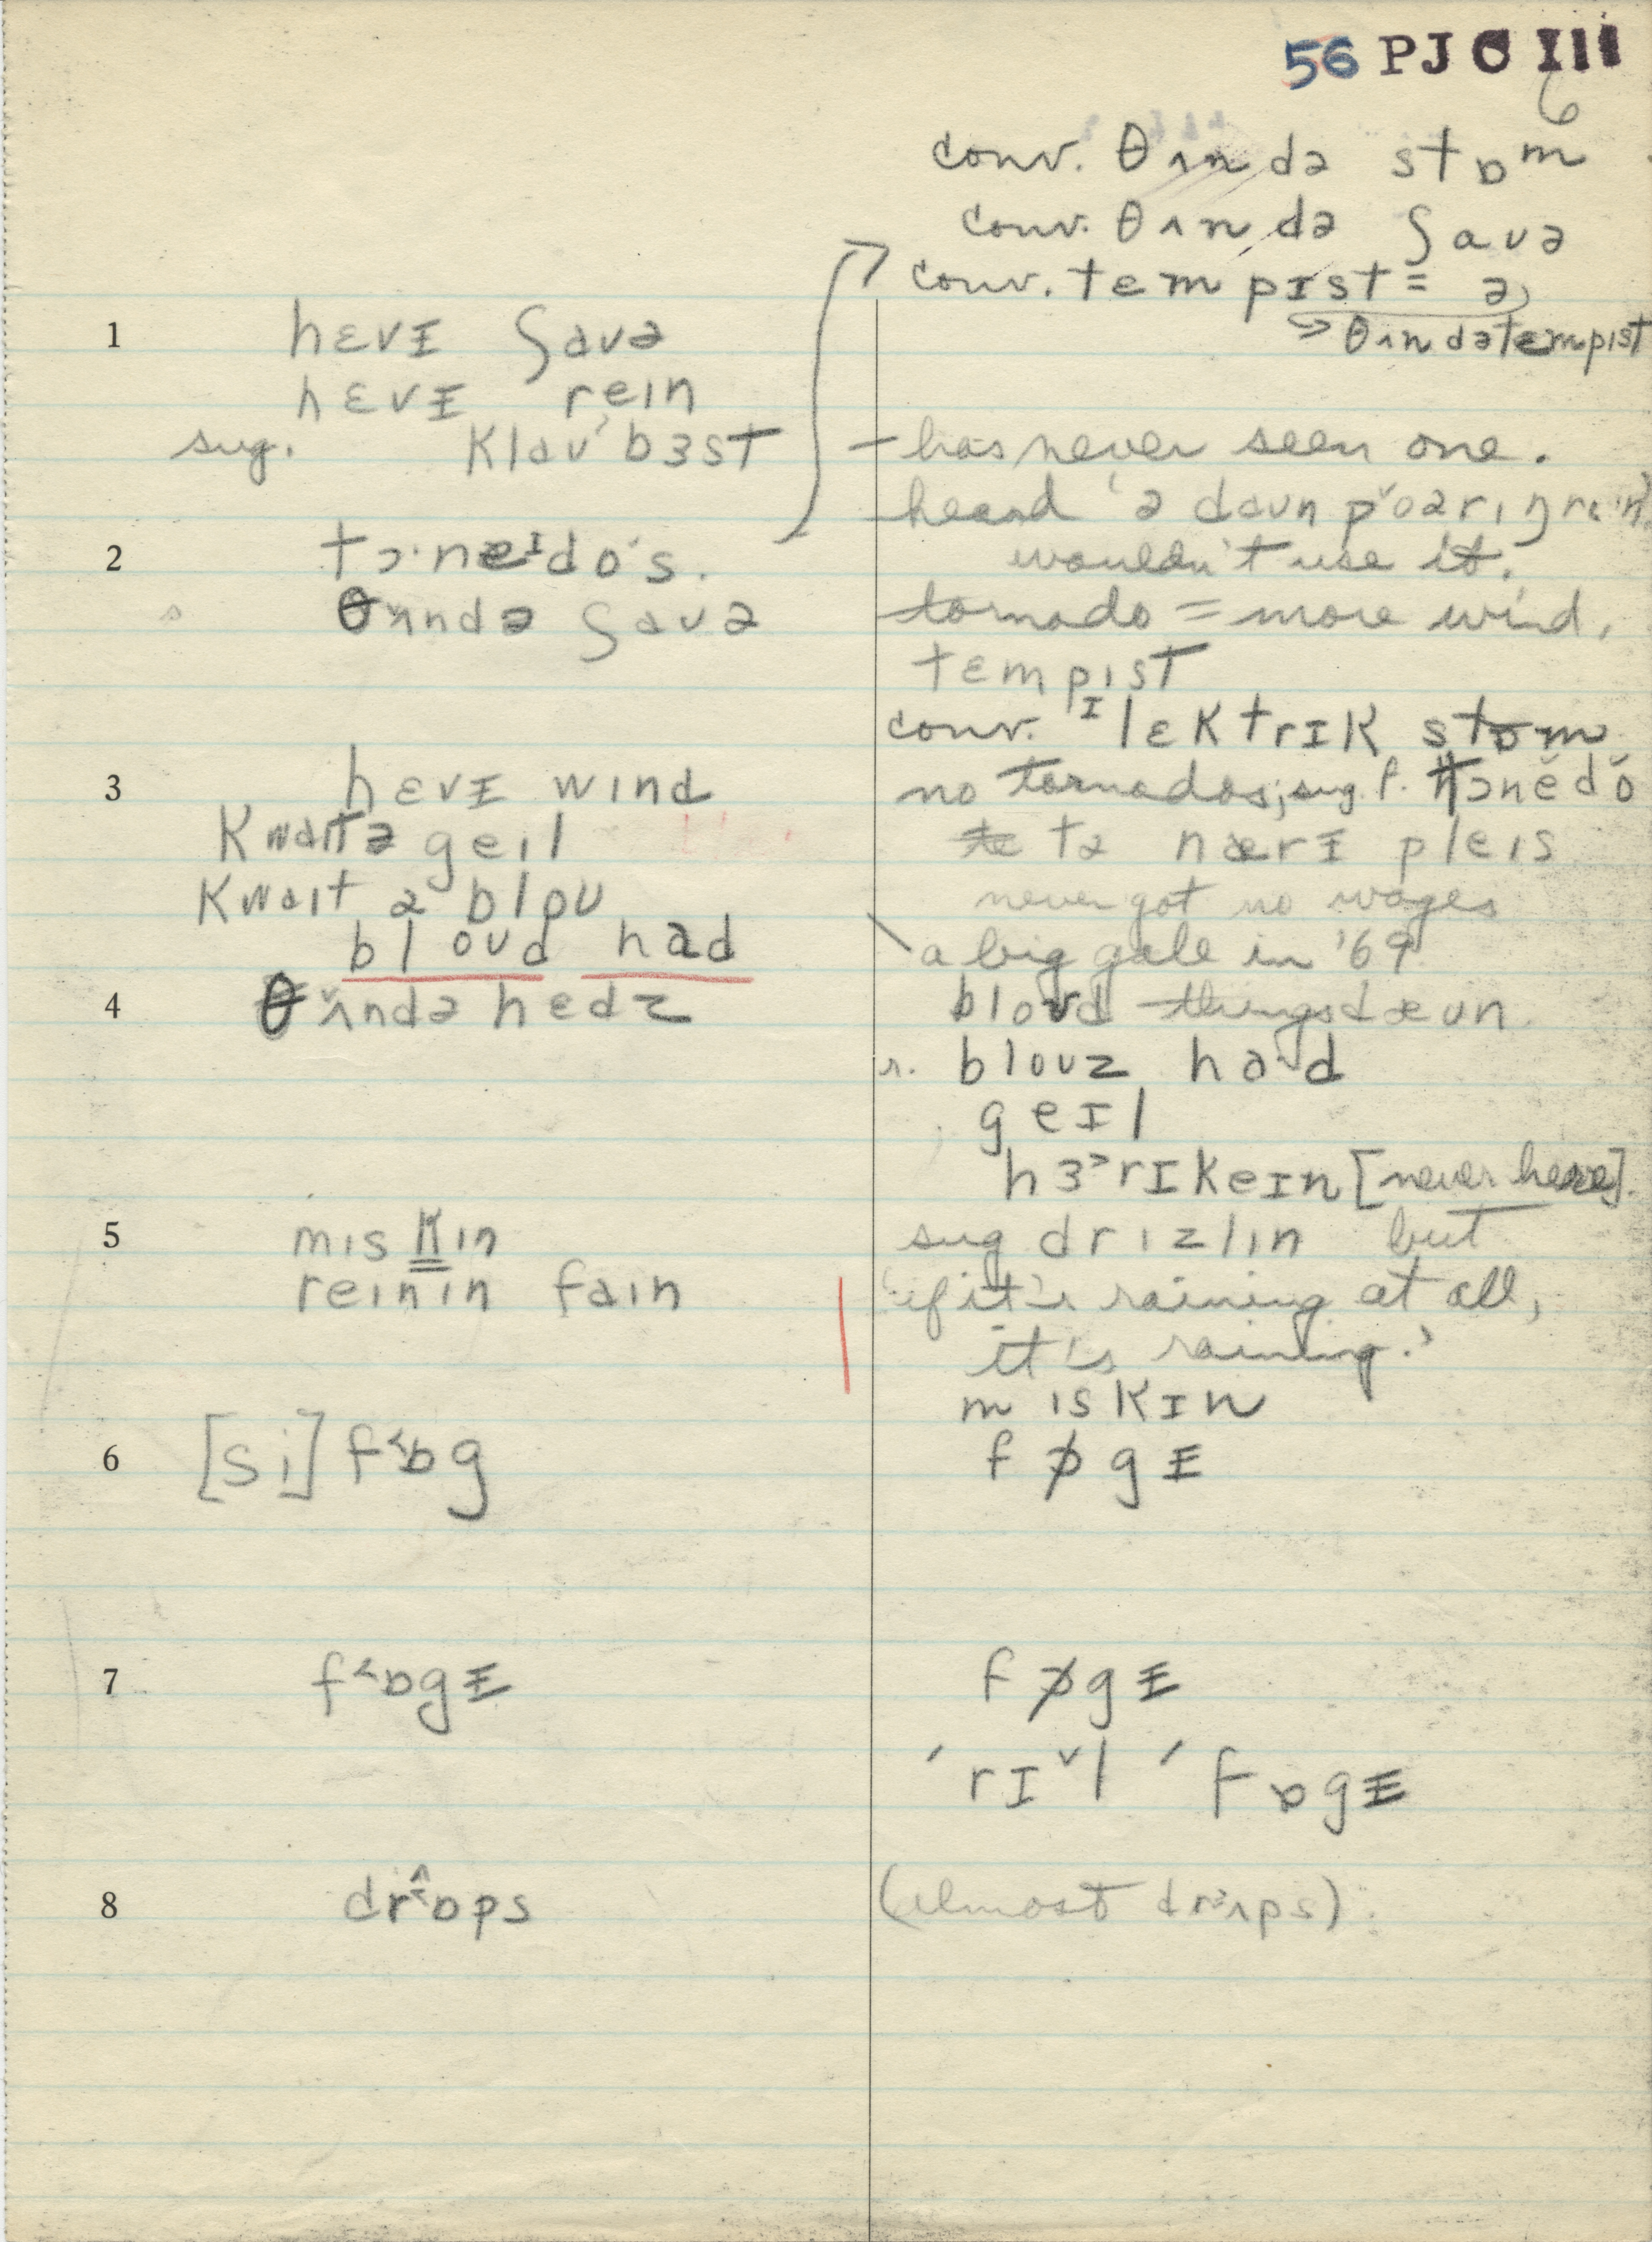 56 PJC III
6
conv. θʌndə stɒm
conv. θʌndə ʃaʊə
conv. tempɪst = ə
↳ θʌndətempɪst
1 hɛvɪ ʃaʊə
hɛvɪ rein
sug. klaʊ'bɜst
– has never seen one.
heard 'ə daʊn pˇoərɪŋ rein'
wouldn't use it.
2 tɔ·neɪdo·s.
θʌndə ʃaʊə
tornado = more wind.
tɛmpɪst
conv. ɪlɛktrɪk stɒm
3 hɛvɪ wɪnd
kwaitə geɪl
kwait ə bloʊ
bloʊd had
no tornados; sug. f. tɔnĕdŏ
tə nærɪ pleɪs
never got no wages
a big gale in '69
4 θʌndə hedz
bloʊd things dæʊn
r. bloʊz ha·d
geɪl
hɜ˃rɪkeɪn [never here]
5 mɪskɪn
reɪnɪn faɪn
sug drɪzlɪn but
'if it's raining at all,
it's raining.'
mɪskɪn
6 [si] f˂ɒg
fɒgɪ
7 f˂ɒgɪ
fɒgɪ
ˊrɪˇl ˊfɒgɪ
8 dr˂ɒps
(almost drʌps).